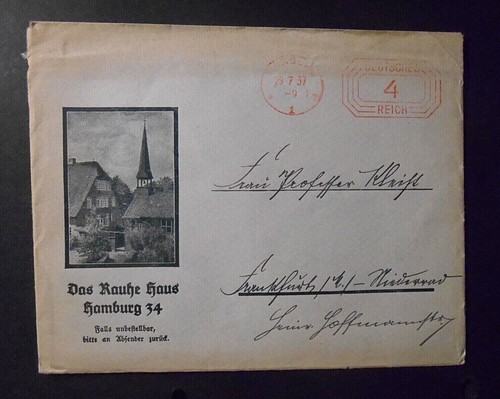 29.7.37
-9
1
DEUTSCHES
4
REICH
Frau Professor Kleist
Frankfurt /M./ - Niederrad
Heinr. Hoffmannstr.
Das Rauhe Haus
Hamburg 34
Falls unbestellbar,
bitte an Absender zurück.